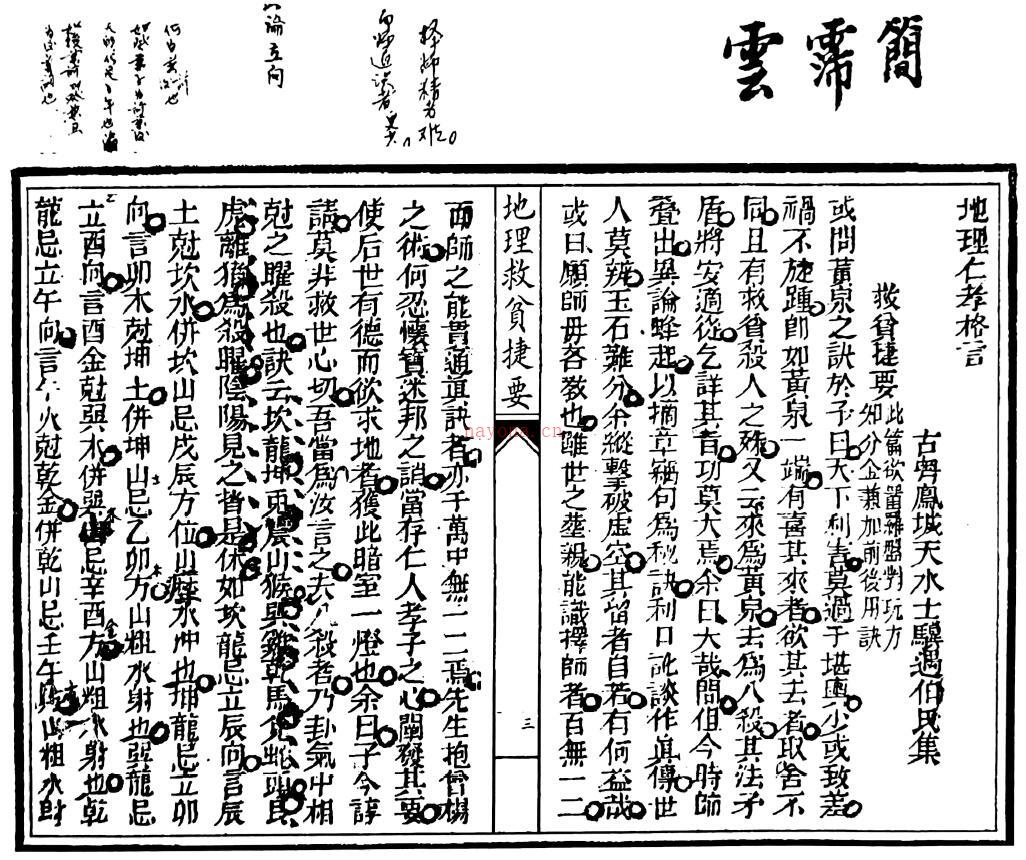 簡
霈
雲
擇師精為难
地理仁孝格言
古粵鳳城天水士驥遇伯氏集
救貧捷要
此篇欲留羅盤對玩方
知分金兼加前後用訣
或問黃泉之訣於予曰天下利害莫過于堪輿少或致差
禍不旋踵卽如黃泉一端有喜其來者欲其去者取舍不
同且有救貧殺人之殊又云來為黃泉去為八殺其法矛
盾將安適從乞詳其旨功莫大焉余曰大哉問但今時師
疊出異論蜂起以摘章稱句為秘訣利口訛談作眞傳世
人莫辨玉石難分余縱擊破虛空其留者自若有何益哉
或曰願師毋吝教也雖世之塟親能識擇師者百無一二
地理救貧捷要
三
而師之能貫通眞訣者亦千萬中無一二焉先生抱曾楊
之術何忍懷寶迷邦之誚當存仁人孝子之心闡礙其要
使后世有德而欲求地者獲此暗室一燈也余曰子今諄
請莫非救世心切吾當為汝言之夫八殺者乃卦氣中相
尅之曜殺也訣云坎龍坤兎震山猴巽雞乾馬兌蛇頭艮
虎離猪為殺曜陰陽見之皆是休如坎龍忌立辰向言辰
土尅坎水併坎山忌戌辰方位山塟水冲也坤龍忌立卯
向言卯木尅坤土併坤山忌乙卯方山粗水射也巽龍忌
立酉向言酉金尅巽木併巽山忌辛酉方山粗水射也乾
龍忌立午向言午火尅乾金併乾山忌壬午方山粗水射